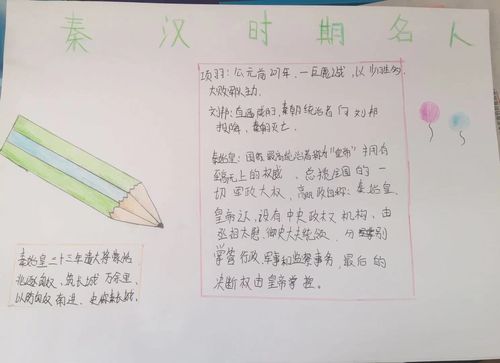 秦汉时期名人
项羽：公元前207年，一巨鹿战，以少胜多
大败军主动.
刘邦：直逼咸阳，秦朝统治者向刘邦
投降，秦朝灭亡.
秦始皇：国家最高统治者称为"皇帝"并拥有
至高无上的权威、总揽全国的一
切军政大权，自称：秦始皇.
皇帝认，设有中央政权机构，由
丞相太尉、御史大夫统领，分别
掌管行政、军事和监察事务，最后的
决断权由皇帝掌握.
秦始皇三十三年遣大将蒙恬
北筑长城万余里，
以防匈奴南进，史称秦长城.